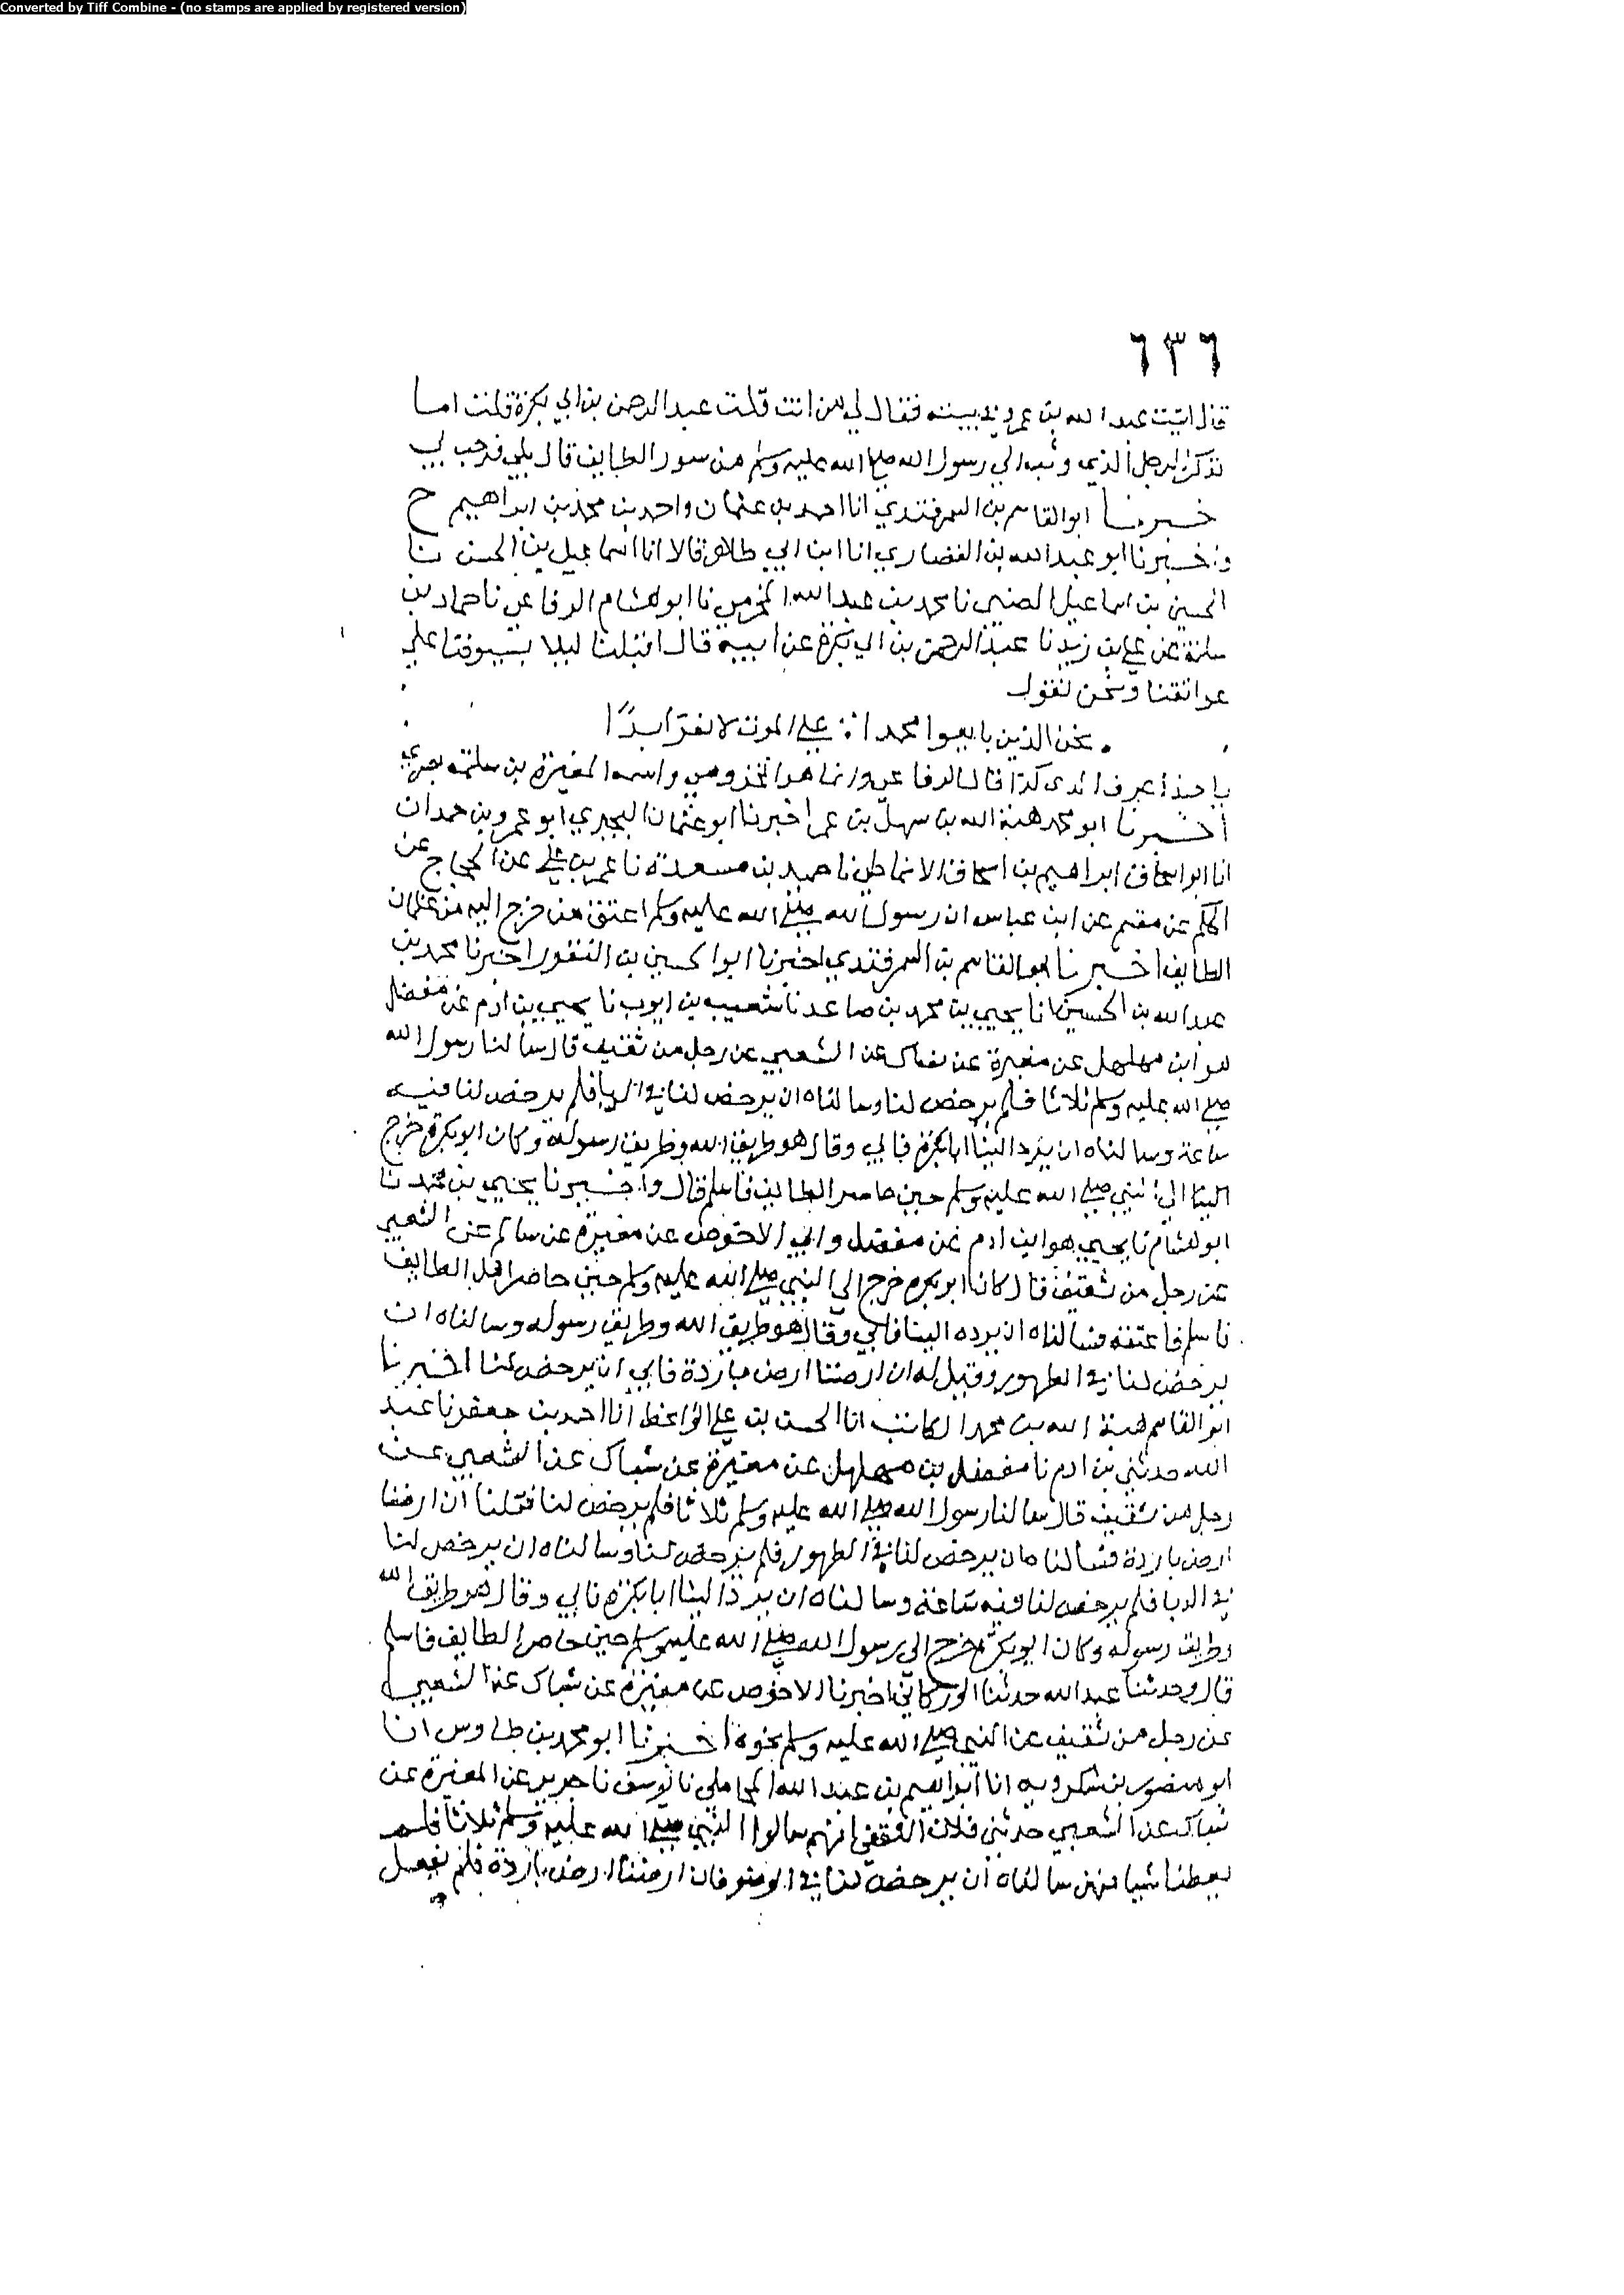 Converted by Tiff Combine - (no stamps are applied by registered version)
٦٣٦
قال اتيت عبد الله بن عمرو في بيته فقال لي من انت قلت عبد الرحمن بن ابي بكرة قلت اما
تذكر الرجل الذي وثب الي رسول الله صلى الله عليه وسلم من سور الطايف قال بلي فرحب بي
خبرنا ابو القاسم بن السمرقندي انا احمد بن عثمان واحمد بن محمد بن ابراهيم ح
واخبرنا ابو عبد الله بن القصاري انا ابن ابي طاهر قالا انا اسماعيل بن الحسن نا
الحسين بن اسماعيل الضبي نا محمد بن عبد الله المخرمي نا ابو هشام الرفاعي نا حماد بن
سلمة عن علي بن زيد نا عبد الرحمن بن ابي بكرة عن ابيه قال اقبلنا ليلا بسيوفنا علي
عواتقنا ونحن نقول
نحن الذين بايعوا محمدا : علي الموت لا نفر ابدا
كذا قال الرفاعي وانما هو المخزومي واسمه المغيرة بن سلمة بصري
اخبرنا ابو محمد هبة الله بن سهل بن عمر اخبرنا ابو عثمان البحيري ابو عمرو بن حمدان
انا ابو اسحاق ابراهيم بن اسحاق الانماطي نا حميد بن مسعدة نا عمر بن علي عن الحجاج عن
الحكم عن مقسم عن ابن عباس ان رسول الله صلى الله عليه وسلم اعتق من خرج اليه من غلمان
الطايف اخبرنا ابو القاسم بن السمرقندي اخبرنا ابو الحسين بن النقور اخبرنا محمد بن
عبد الله بن الحسين انا يحيي بن محمد بن صاعد نا شعيب بن ايوب نا يحيي بن ادم عن مفضل
هو ابن مهلهل عن مغيرة عن شباك عن الشعبي عن رجل من ثقيف قال سالنا رسول الله
صلى الله عليه وسلم ثلاثا فلم يرخص لنا وسالناه ان يرخص لنا في الدبا فلم يرخص لنا فيه
ساعة وسالناه ان يرد الينا ابا بكرة فابي وقال هو طريق الله وطريق رسوله وكان ابو بكرة خرج
الينا الي النبي صلى الله عليه وسلم حين حاصر الطايف فاسلم قال واخبرنا يحيي بن محمد نا
ابو هشام نا يحيي هو ابن ادم عن مفضل وابي الاحوص عن مغيرة عن سالم عن الشعبي
عن رجل من ثقيف قال كان ابو بكرة خرج الي النبي صلى الله عليه وسلم حين حاصر اهل الطايف
فاسلم فاعتقه فسالناه ان يرده الينا فابي وقال هو طريق الله وطريق رسوله وسالناه ان
يرخص لنا في الطهور وقيل له ان ارضنا ارض باردة فابي ان يرخص لنا اخبرنا
ابو القاسم هبة الله بن محمد الكاتب انا الحسن بن علي الواعظ انا احمد بن جعفر نا عبد
الله حدثني بن ادم نا مفضل بن مهلهل عن مغيرة عن شباك عن الشعبي عن
رجل من ثقيف قال سالنا رسول الله صلى الله عليه وسلم ثلاثا فلم يرخص لنا فقلنا ان ارضنا
ارض باردة فسالناه ان يرخص لنا في الطهور فلم يرخص لنا وسالناه ان يرخص لنا
في الدبا فلم يرخص لنا فيه ساعة وسالناه ان يرد الينا ابا بكرة فابي وقال هو طريق الله
وطريق رسوله وكان ابو بكرة خرج الي رسول الله صلى الله عليه وسلم حين حاصر الطايف فاسلم
قال وحدثنا عبد الله حدثنا الوركاني اخبرنا الاحوص عن مغيرة عن شباك عن الشعبي
عن رجل من ثقيف عن النبي صلى الله عليه وسلم نحوه اخبرنا ابو محمد بن طاوس انا
ابو منصور بن شكرويه انا ابراهيم بن عبد الله المحاملي نا يوسف نا جرير عن المغيرة عن
شباك عن الشعبي حدثني فلان الثقفي انهم سالوا النبي صلى الله عليه وسلم ثلاثا فلم
يعطنا شيا منهن سالناه ان يرخص لنا في الوضو فان ارضنا ارض باردة فلم يفعل